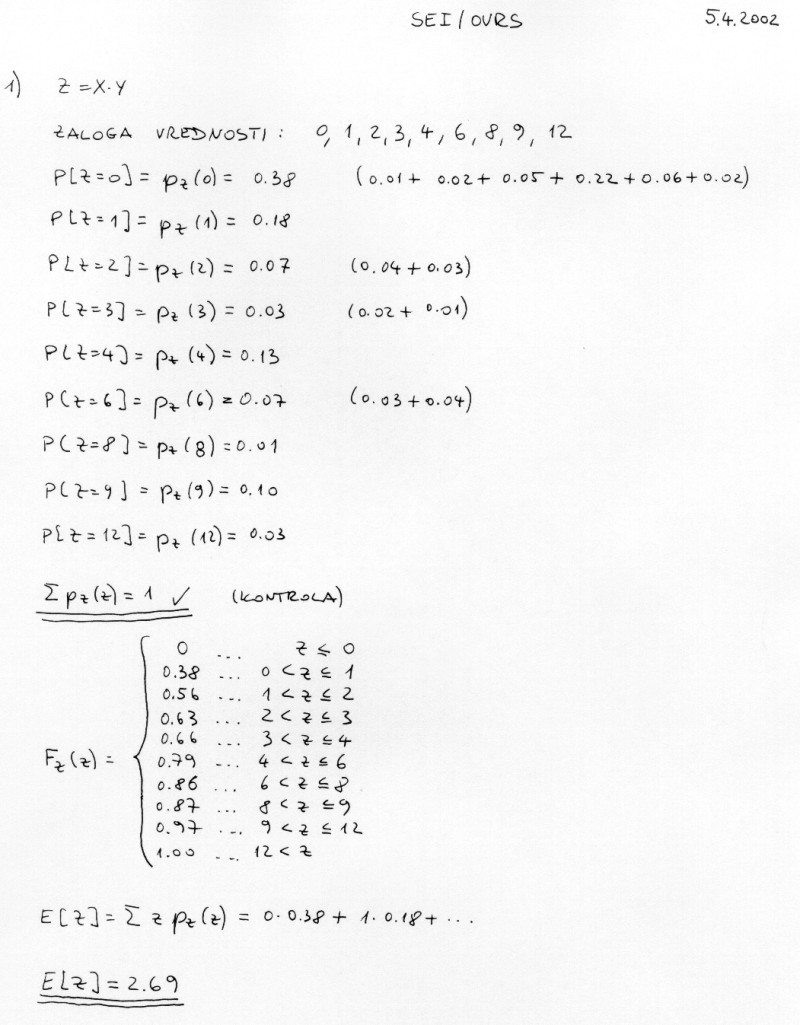 SEI/OVRS 5.4.2002
1) Z = X·Y
ZALOGA VREDNOSTI: 0, 1, 2, 3, 4, 6, 8, 9, 12
P[Z=0] = p_Z(0) = 0.38 (0.01 + 0.02 + 0.05 + 0.22 + 0.06 + 0.02)
P[Z=1] = p_Z(1) = 0.18
P[Z=2] = p_Z(2) = 0.07 (0.04 + 0.03)
P[Z=3] = p_Z(3) = 0.03 (0.02 + 0.01)
P[Z=4] = p_Z(4) = 0.13
P[Z=6] = p_Z(6) = 0.07 (0.03 + 0.04)
P[Z=8] = p_Z(8) = 0.01
P[Z=9] = p_Z(9) = 0.10
P[Z=12] = p_Z(12) = 0.03
Σ p_Z(z) = 1 ✓ (KONTROLA)
F_Z(z) =
0 ... z ≤ 0
0.38 ... 0 < z ≤ 1
0.56 ... 1 < z ≤ 2
0.63 ... 2 < z ≤ 3
0.66 ... 3 < z ≤ 4
0.79 ... 4 < z ≤ 6
0.86 ... 6 < z ≤ 8
0.87 ... 8 < z ≤ 9
0.97 ... 9 < z ≤ 12
1.00 ... 12 < z
E[Z] = Σ z p_Z(z) = 0·0.38 + 1·0.18 + ...
E[Z] = 2.69